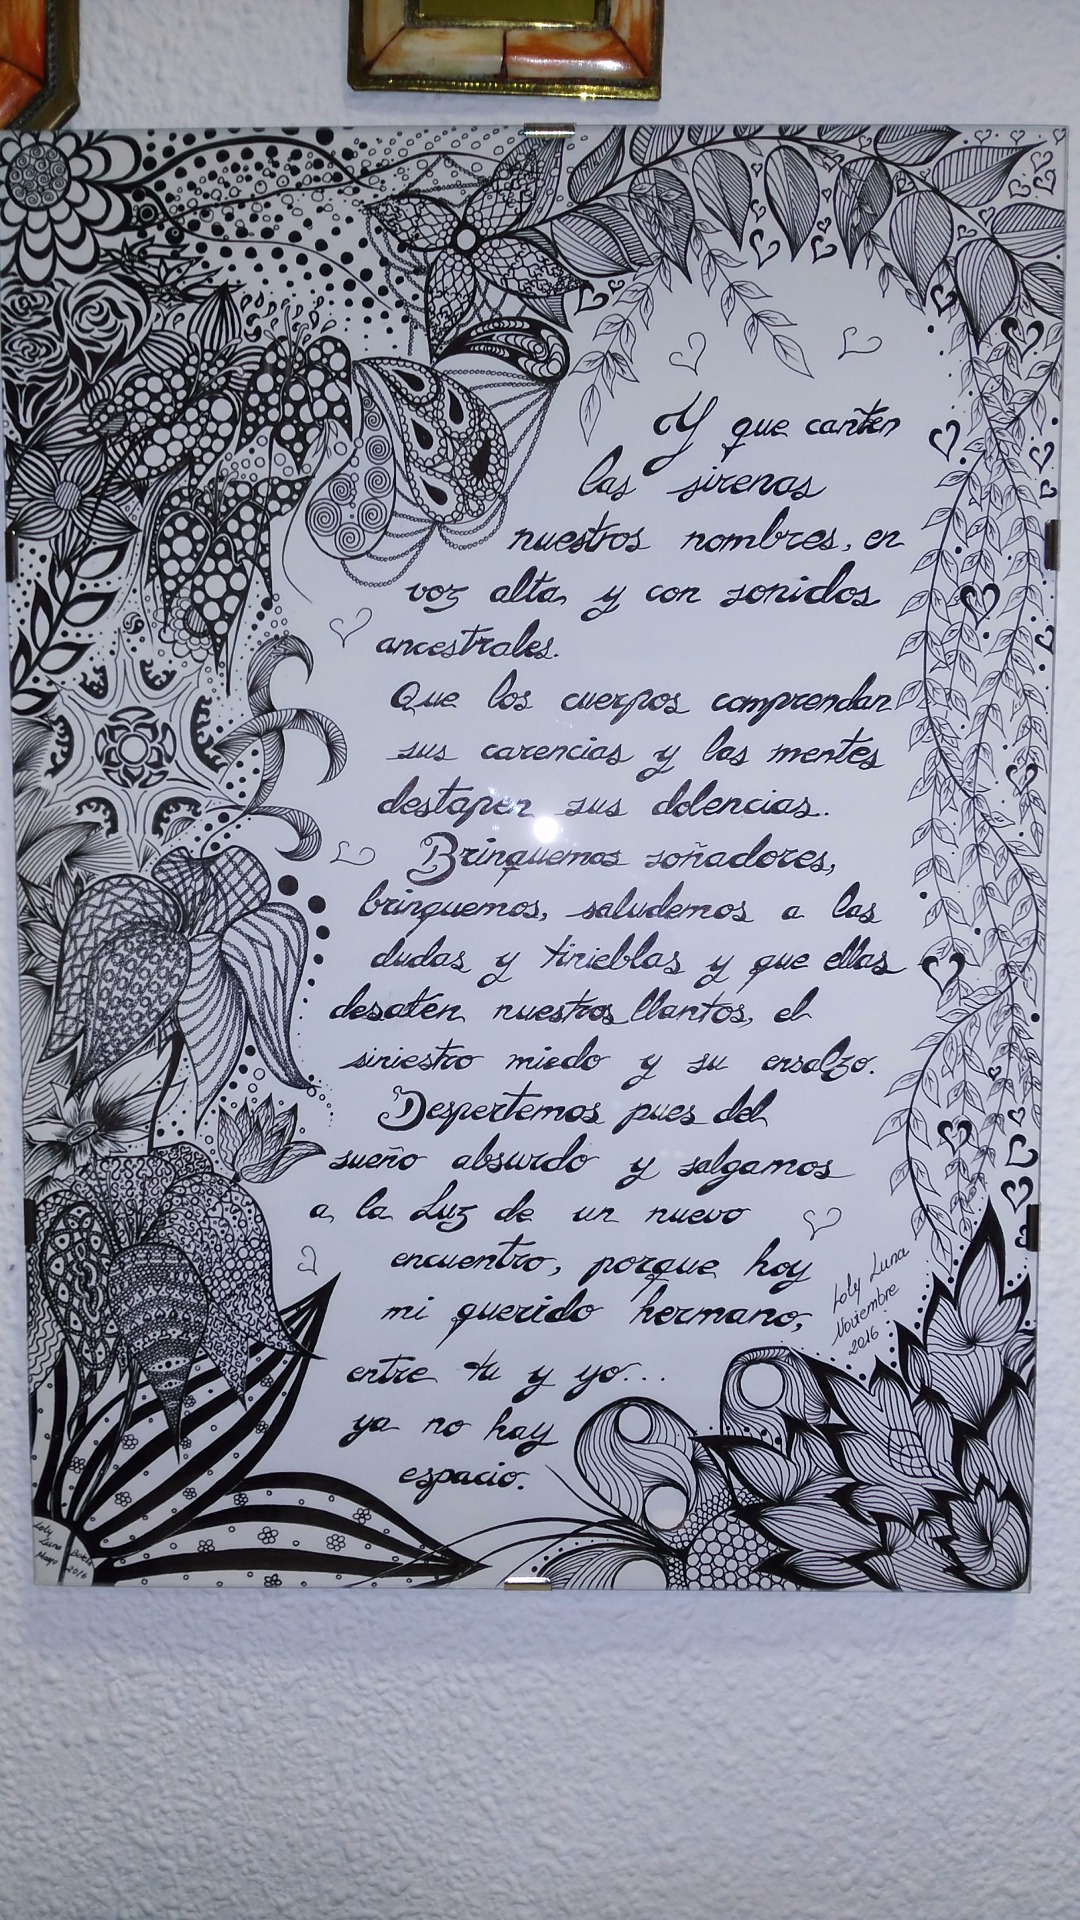 Y que canten
las sirenas
nuestros nombres, en
voz alta y con sonidos
ancestrales.
Que los cuerpos comprendan
sus carencias y las mentes
destapen sus dolencias.
Brinquemos soñadores,
brinquemos, saludemos a las
dudas y tinieblas y que ellas
desaten nuestros llantos, el
siniestro miedo y su ensalzo.
Despertemos pues del
sueño absurdo y salgamos
a la Luz de un nuevo
encuentro, porque hoy
mi querido hermano,
entre tu y yo...
ya no hay
espacio.
Loly Luna
Noviembre
2016
Loly
Luna
Mayo 2016